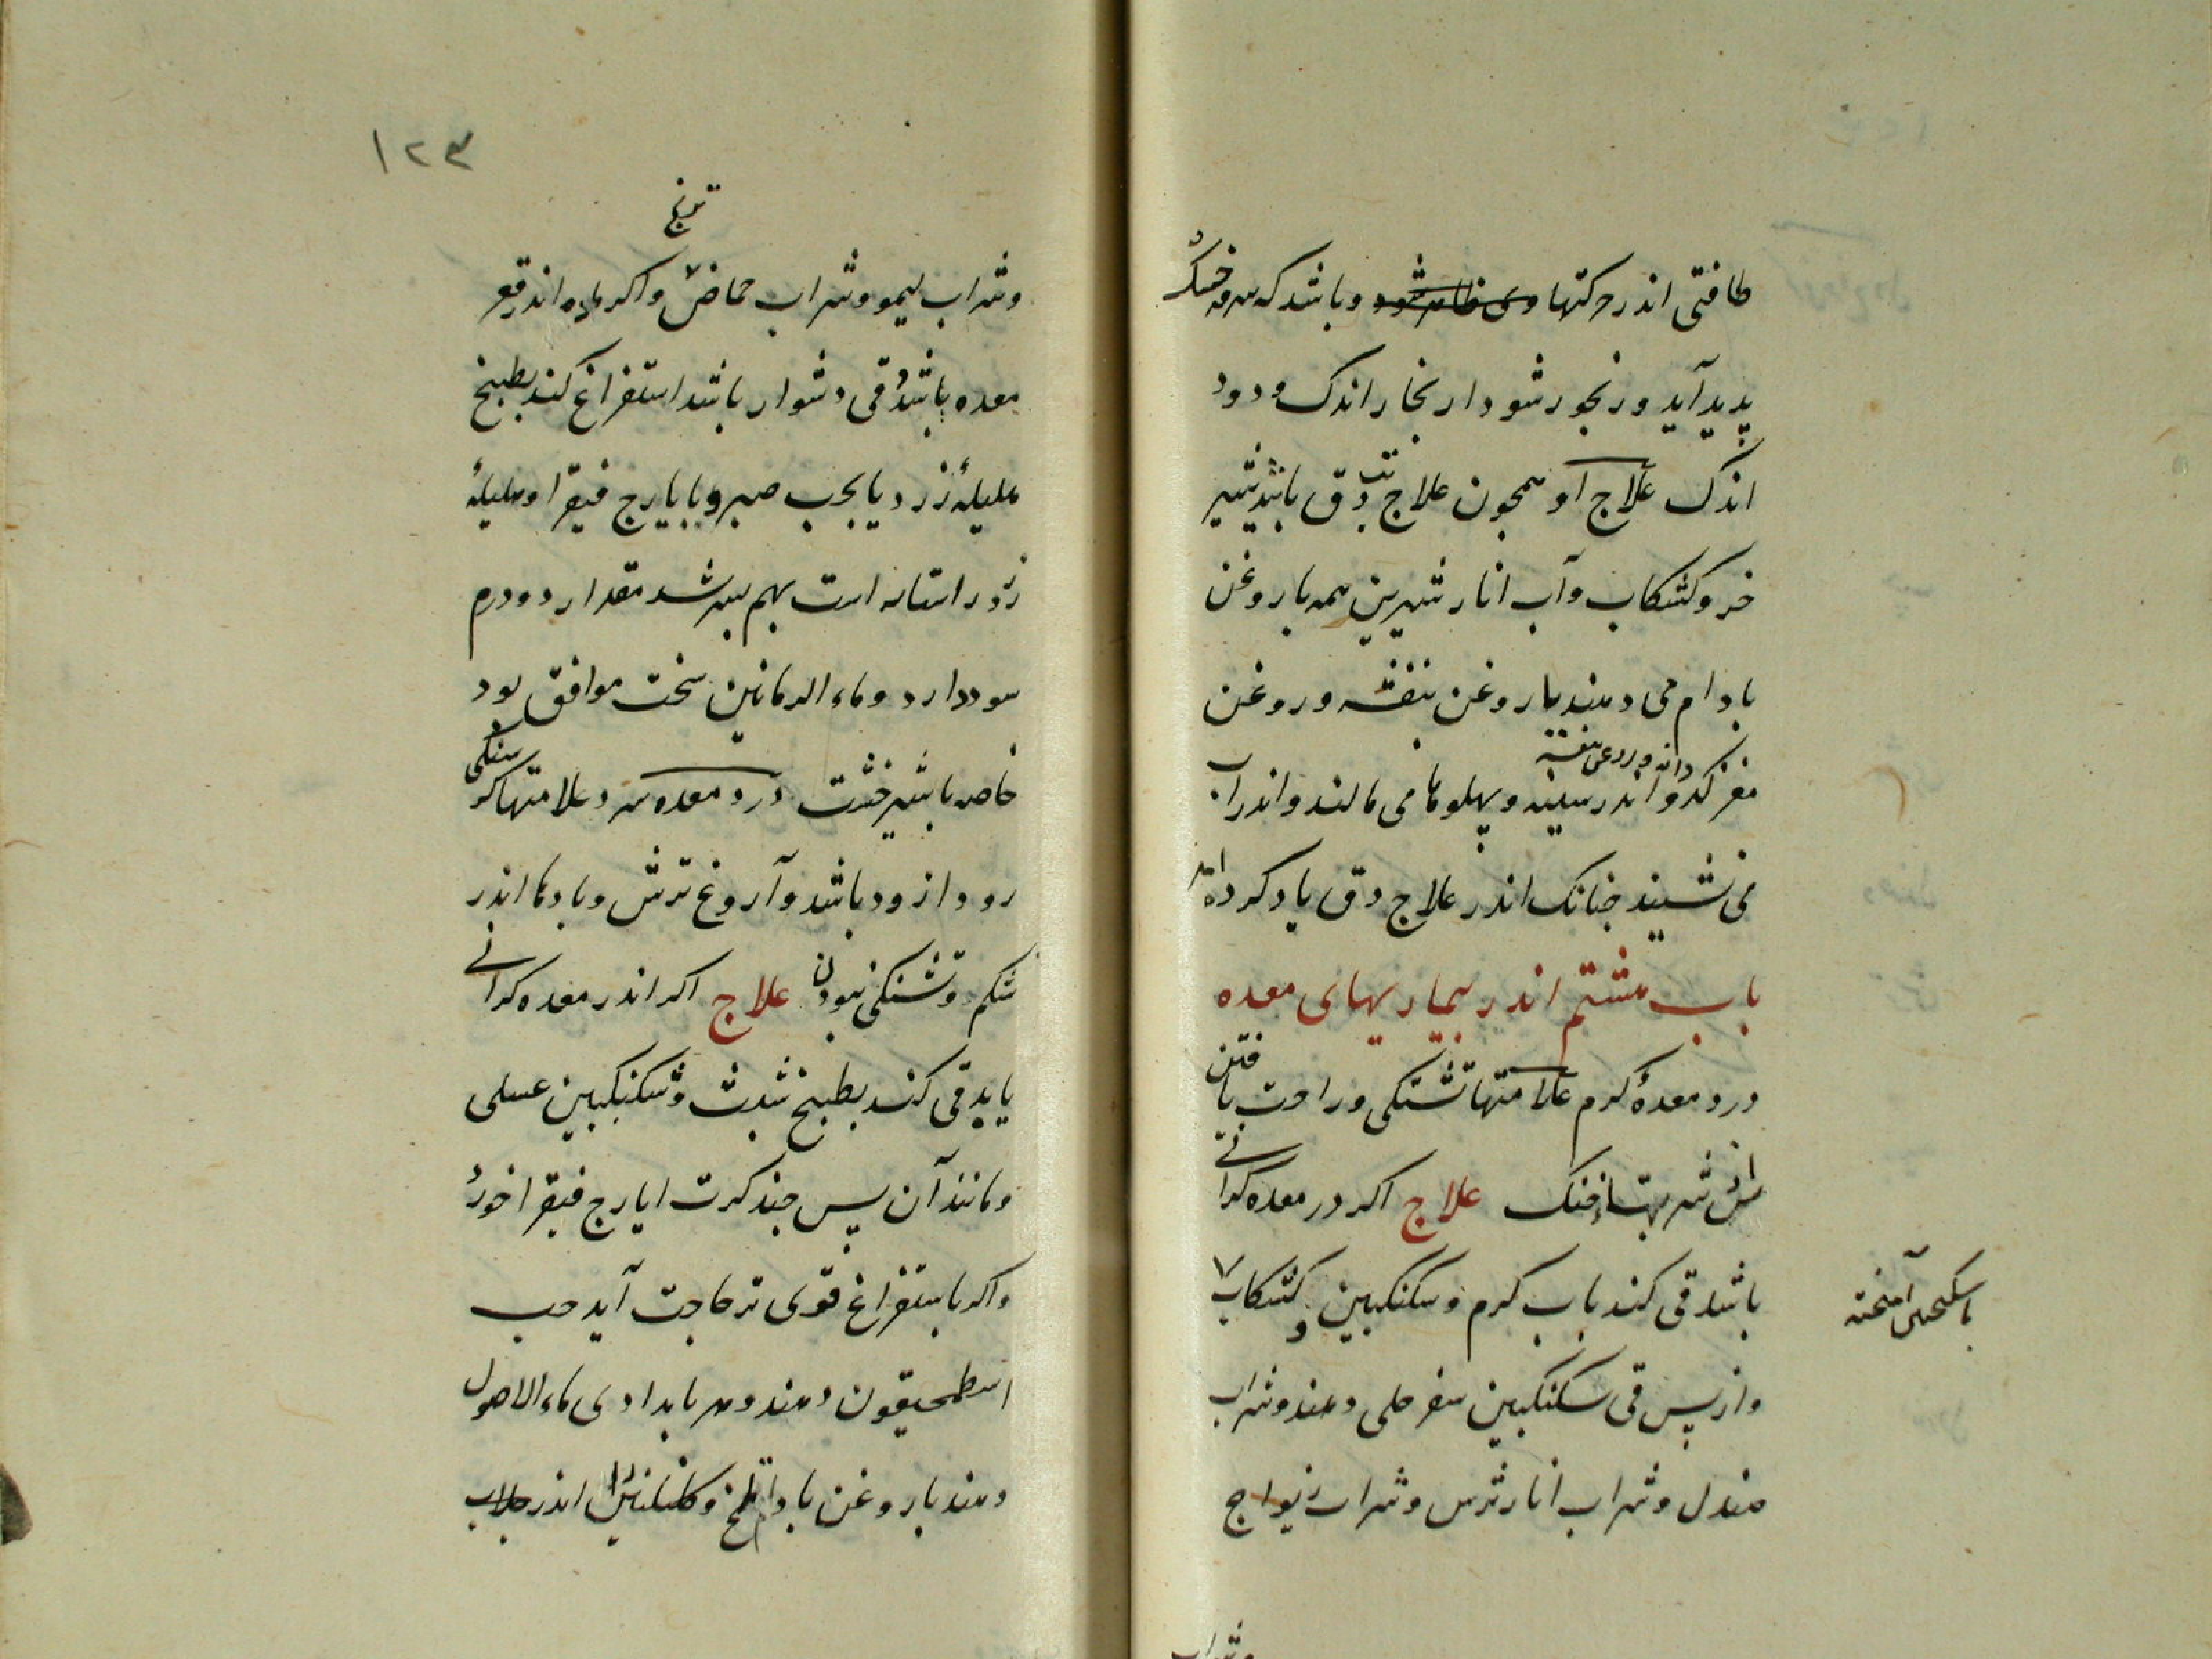 طاقتی اندر حرکتها وی ظاهر شود و باشد که سرفه خشک
پدید آید و رنجور شود از بخار اندک و دود
اندک علاج او همچون علاج تب دق باشد شیر
خر و کشکاب و آب انار شیرین همه با روغن
بادام می دهند یا روغن بنفشه و روغن
دانه و روغن بنفشه
مغز کدو اندر سینه و پهلوها می مالند و اندر آب
می نشیند چنانک اندر علاج دق یاد کرده اند
باب هشتم اندر بیماریهای معده
درد معدهٔ کرم علامتها تشنکی و راحت یافتن
از شربتها خنک علاج اکر در معده کرانی
باشد قی کند باب کرم و سکنکبین و کشکاب
با سکنجبین آمیخته
و از پس قی سکنکبین سفرجلی دهند و شراب
صندل و شراب انار ترش و شراب ریواج
و شراب
۱۲۳
ترنج
و شراب لیمو و شراب حماض و اکر ماده اندر قعر
معده باشد و قی دشوار باشد استفراغ کند بطبیخ
هلیلهٔ زرد یا بحب صبر و یا بایارج فیقرا و هلیلهٔ
زرد راستا راست بهم بسرشند مقدار دو درم
سود دارد و ماء الرمانین سخت موافق بود
خاصه با شیرخشت درد معده سرد علامتها کرسنکی
زود ازود باشد و آروغ ترش و بادها اندر
شکم و تشنکی نبودن علاج اکر اندر معده کرانی
یابد قی کند بطبیخ شبت و سکنکبین عسلی
و مانند آن پس چند کرت ایارج فیقرا خورد
و اکر باستفراغ قوی تر حاجت آید حب
اسطمحیقون دهند و هر بامدادی ماء الاصول
دهند با روغن بادام تلخ و کلنکبین اندر جلاب